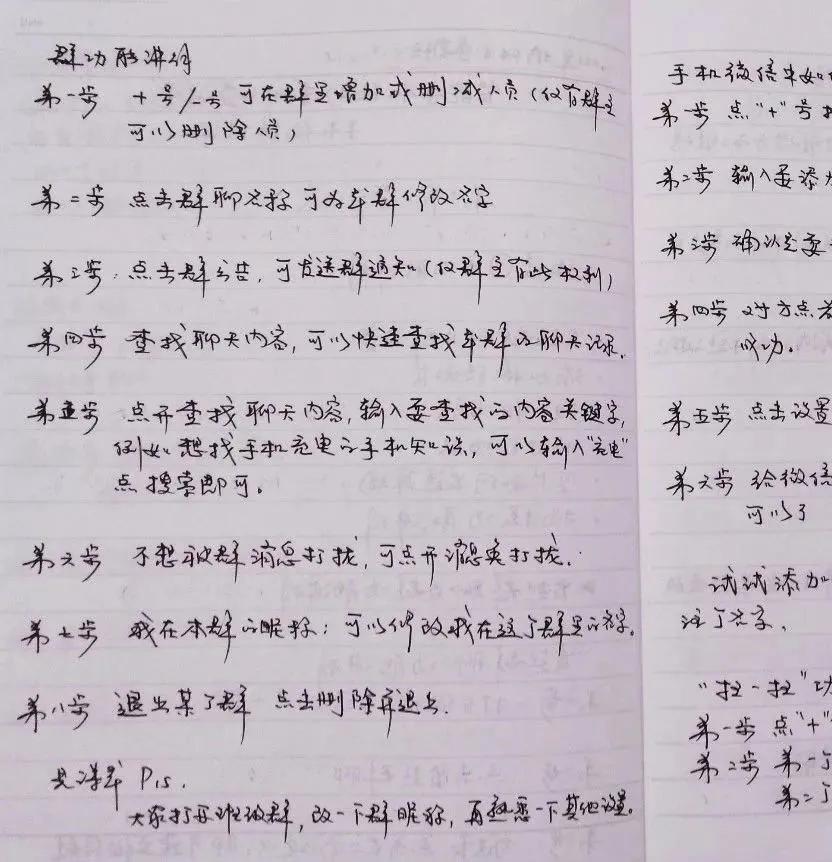 群功能讲解
第一步 十号/一号 可在群里增加或删减人员(仅有群主
可以删除人员)
第二步 点击群聊名称 可为本群修改名字
第三步:点击群公告,可发送群通知(仅群主有此权利)
第四步 查找聊天内容,可以快速查找本群的聊天记录.
第五步 点开查找聊天内容,输入要查找的内容关键字,
例如想找手机充电的手机知识,可以输入"充电"
点搜索即可。
第六步 不想被群消息打扰,可点开消息免打扰.
第七步 我在本群的昵称:可以修改我在这个群里的名字.
第八步 退出某个群 点击删除并退出.
见讲义 P15.
大家打开班级群,改一下群昵称,再熟悉一下其他设置.
手机微信中如何
第一步 点"+"号
第二步 输入要添加
第三步 确认是要
第四步 对方点击
成功。
第五步 点击设置
第六步 给微信
可以了
试试添加
注个名字.
"扫一扫"功
第一步 点"+"
第二步 第一个
第二个